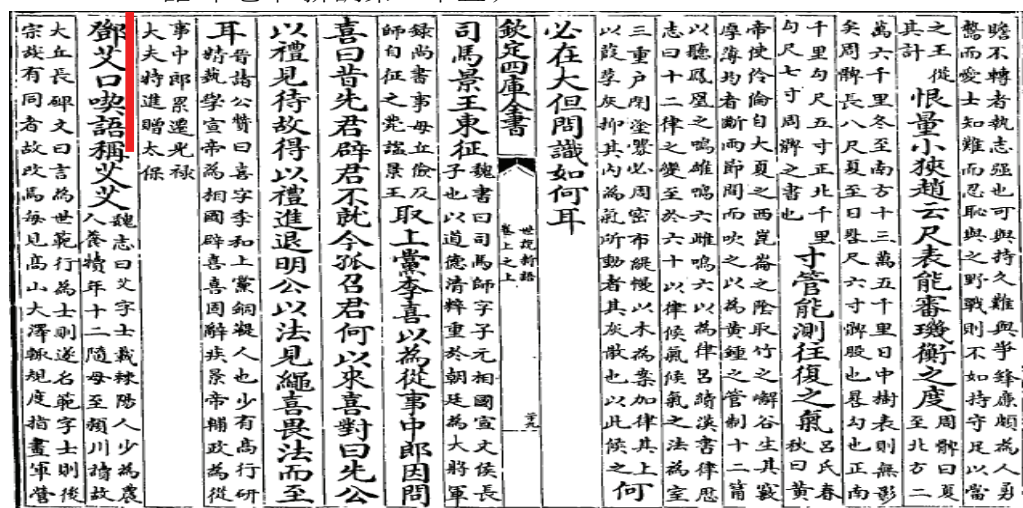 瞻不轉者執志彊也可與持久難與爭鋒廉頗為人勇
鷙而愛士知難而忍恥與之野戰則不如持守足以當
之王從
其計
恨量小狹趙云尺表能審璣衡之度
周髀曰夏
至北方二
萬六千里冬至南方十三萬五千里日中樹表則無影
矣周髀長八尺夏至日晷尺六寸髀股也晷勾也正南
千里勾尺五寸正北千里
勾尺七寸周髀之書也
寸管能測往復之氣
呂氏春
秋曰黃
帝使伶倫自大夏之西崑崙之陰取竹之嶰谷生其竅
厚薄均者斷兩節間而吹之以為黃鍾之管制十二筩
以聽鳳凰之鳴雄鳴六雌鳴六以為律呂續漢書律厯
志曰十二律之變至於六十以律候氣候氣之法為室
三重户閉塗釁必周密布緹幔以木為案加律其上
以葭莩灰抑其內為氣所動者其灰散也以此候之
何
必在大但問識如何耳
欽定四庫全書
世說新語
卷上之上
司馬景王東征
魏書曰司馬師字子元相國宣文侯長
子也以道德清粹重於朝廷為大將軍
録尚書事毋丘儉反
師自征之薨諡景王
取上黨李喜以為從事中郎因問
喜曰昔先君辟君不就今孤召君何以來喜對曰先公
以禮見待故得以禮進退明公以法見繩喜畏法而至
耳
晉諸公贊曰喜字季和上黨銅鞮人也少有高行研
精蓺學宣帝為相國辟喜喜固辭疾景帝輔政為從
事中郎累遷光祿
大夫特進贈太保
鄧艾口喫語稱艾艾
魏志曰艾字士載棘陽人少為農
人養犢年十二隨母至頴川讀故
大丘長碑文曰言為世範行為士則遂名範字士則後
宗族有同者故改焉每見高山大澤輒規度指畫軍營